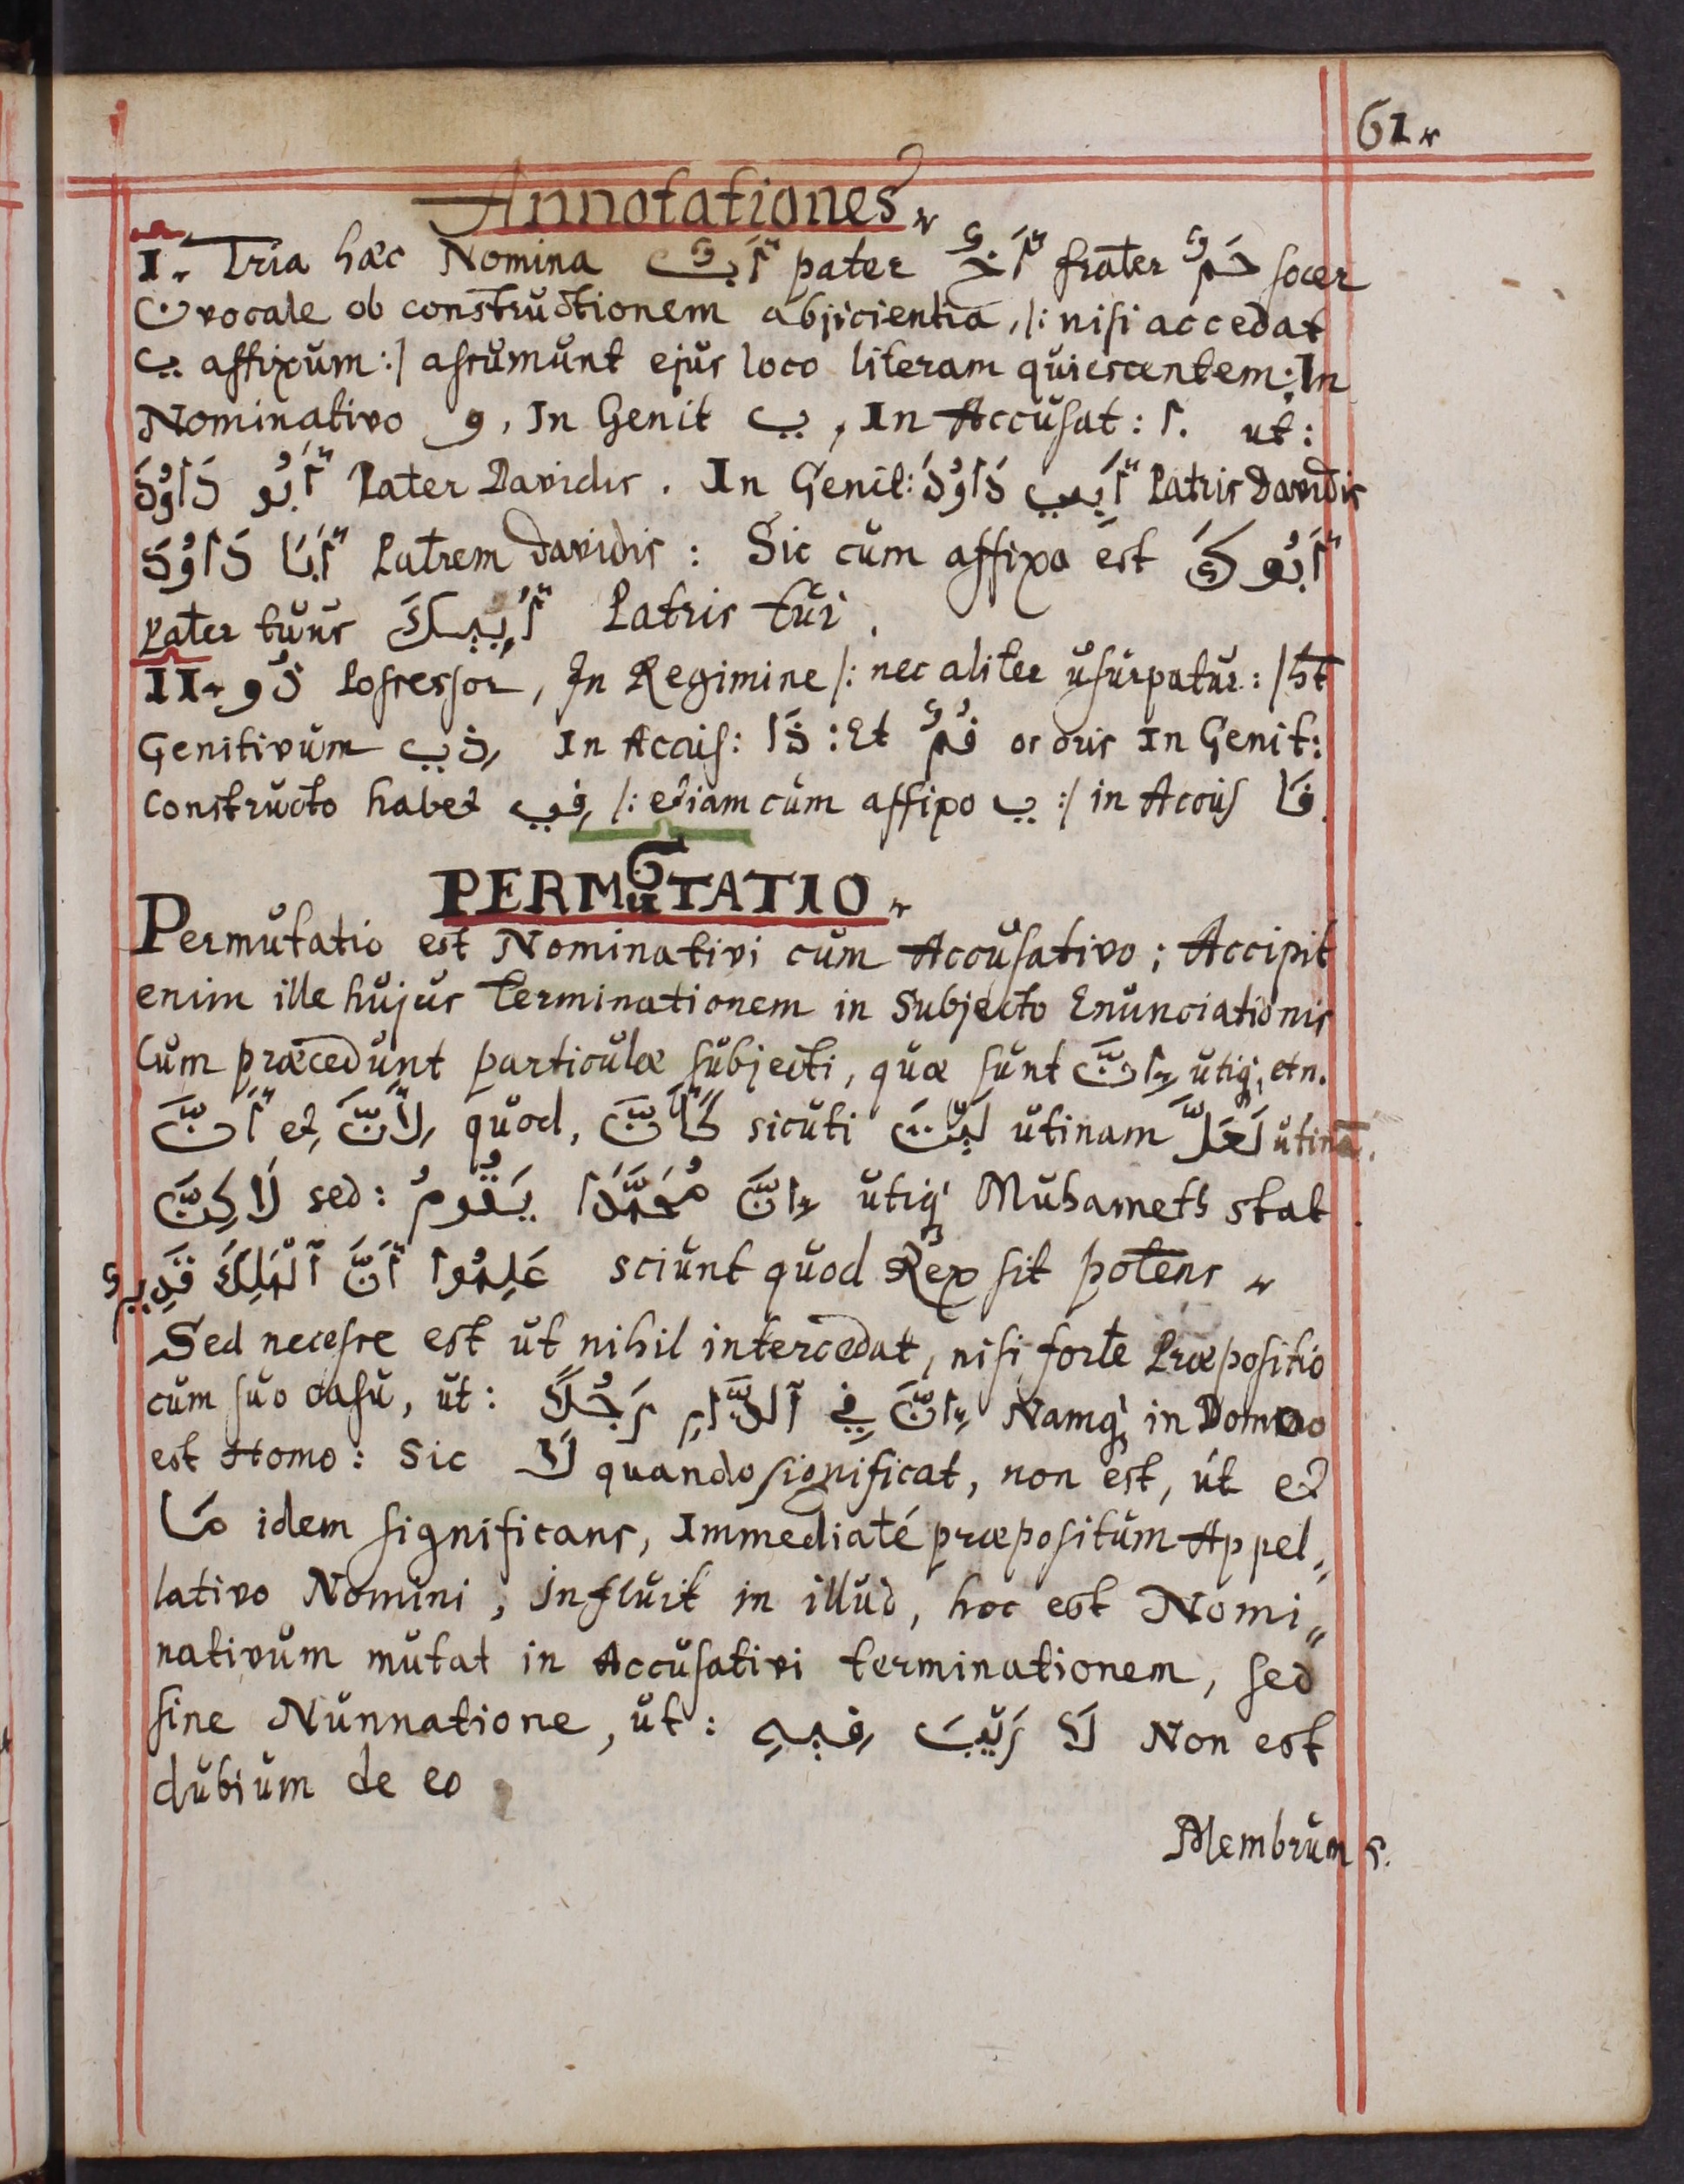 61.
Annotationes.
I. Tria hæc Nomina أَبٌ pater أَخٌ frater حَمٌ socer
ن vocale ob constructionem abjicientia, /: nisi accedat
ي affixum :/ assumunt ejus loco literam quiescentem: In
Nominativo و, In Genit ي, In Accusat: ا. ut:
أَبُو دَاوُدَ Pater Davidis. In Genit: أَبِي دَاوُدَ Patris Davidis
أَبَا دَاوُدَ Patrem Davidis: Sic cum affixo est أَبُوكَ
Pater tuus أَبِيكَ Patris tui.
II. ذُو Possessor, In Regimine /: nec aliter usurpatur: / ht
Genitivum ذِي In Accus: ذَا : Et فُمٌ os oris In Genit:
Constructo habet فِي /: etiam cum affixo ي :/ in Accus فَا.
PERMUTATIO.
Permutatio est Nominativi cum Accusativo; Accipit
enim ille hujus terminationem in Subjecto Enunciationis
Cum præcedunt particulæ subjecti, quæ sunt إِنَّ utiq, etn.
أَنَّ et لِأَنَّ quod, كَأَنَّ sicuti لَيْتَ utinam لَعَلَّ utinã.
لَاكِنَّ sed: إِنَّ مُحَمَّدًا يَقُومُ utiq Muhameth stat.
عَلِمُوا أَنَّ ٱلْمَلِكَ قَدِيرٌ sciunt quod Rex sit potens.
Sed necesse est ut nihil intercedat, nisi forte Præpositio
cum suo casu, ut: إِنَّ فِي ٱلدَّارِ رَجُلًا Namq in Domo
est Homo: Sic لَا quando significat, non est, ut et
مَا idem significans, Immediaté præpositum Appel„
lativo Nomini, Influit in illud, hoc est Nomi„
nativum mutat in Accusativi terminationem, sed
sine Nunnatione, ut: لَا رَيْبَ فِيهِ Non est
dubium de eo
Membrum 5.